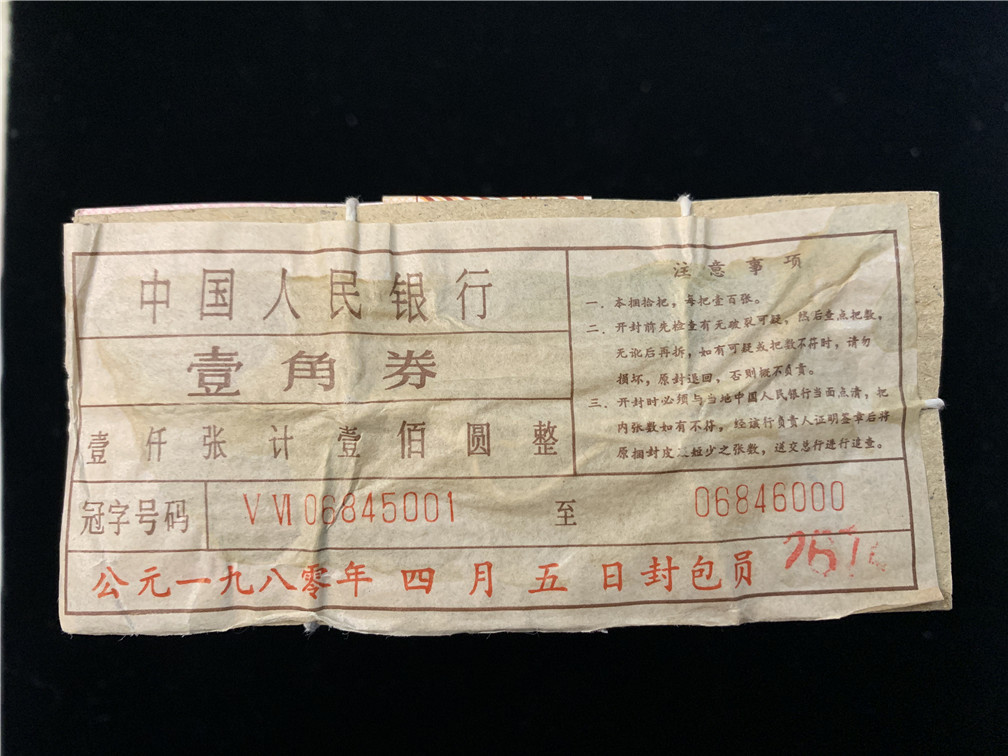 中国人民银行
壹角券
壹仟张计壹佰圆整
注意事项
一、本捆拾把，每把壹百张。
二、开封前先检查有无破裂可疑，然后查点把数，
无讹后再拆，如有可疑或把数不符时，请勿
损坏，原封退回，否则概不负责。
三、开封时必须与当地中国人民银行当面点清，把
内张数如有不符，经该行负责人证明签章后将
原捆封皮及短少之张数，送交总行进行追查。
冠字号码 V Ⅵ 06845001 至 06846000
公元一九八零年 四 月 五 日封包员